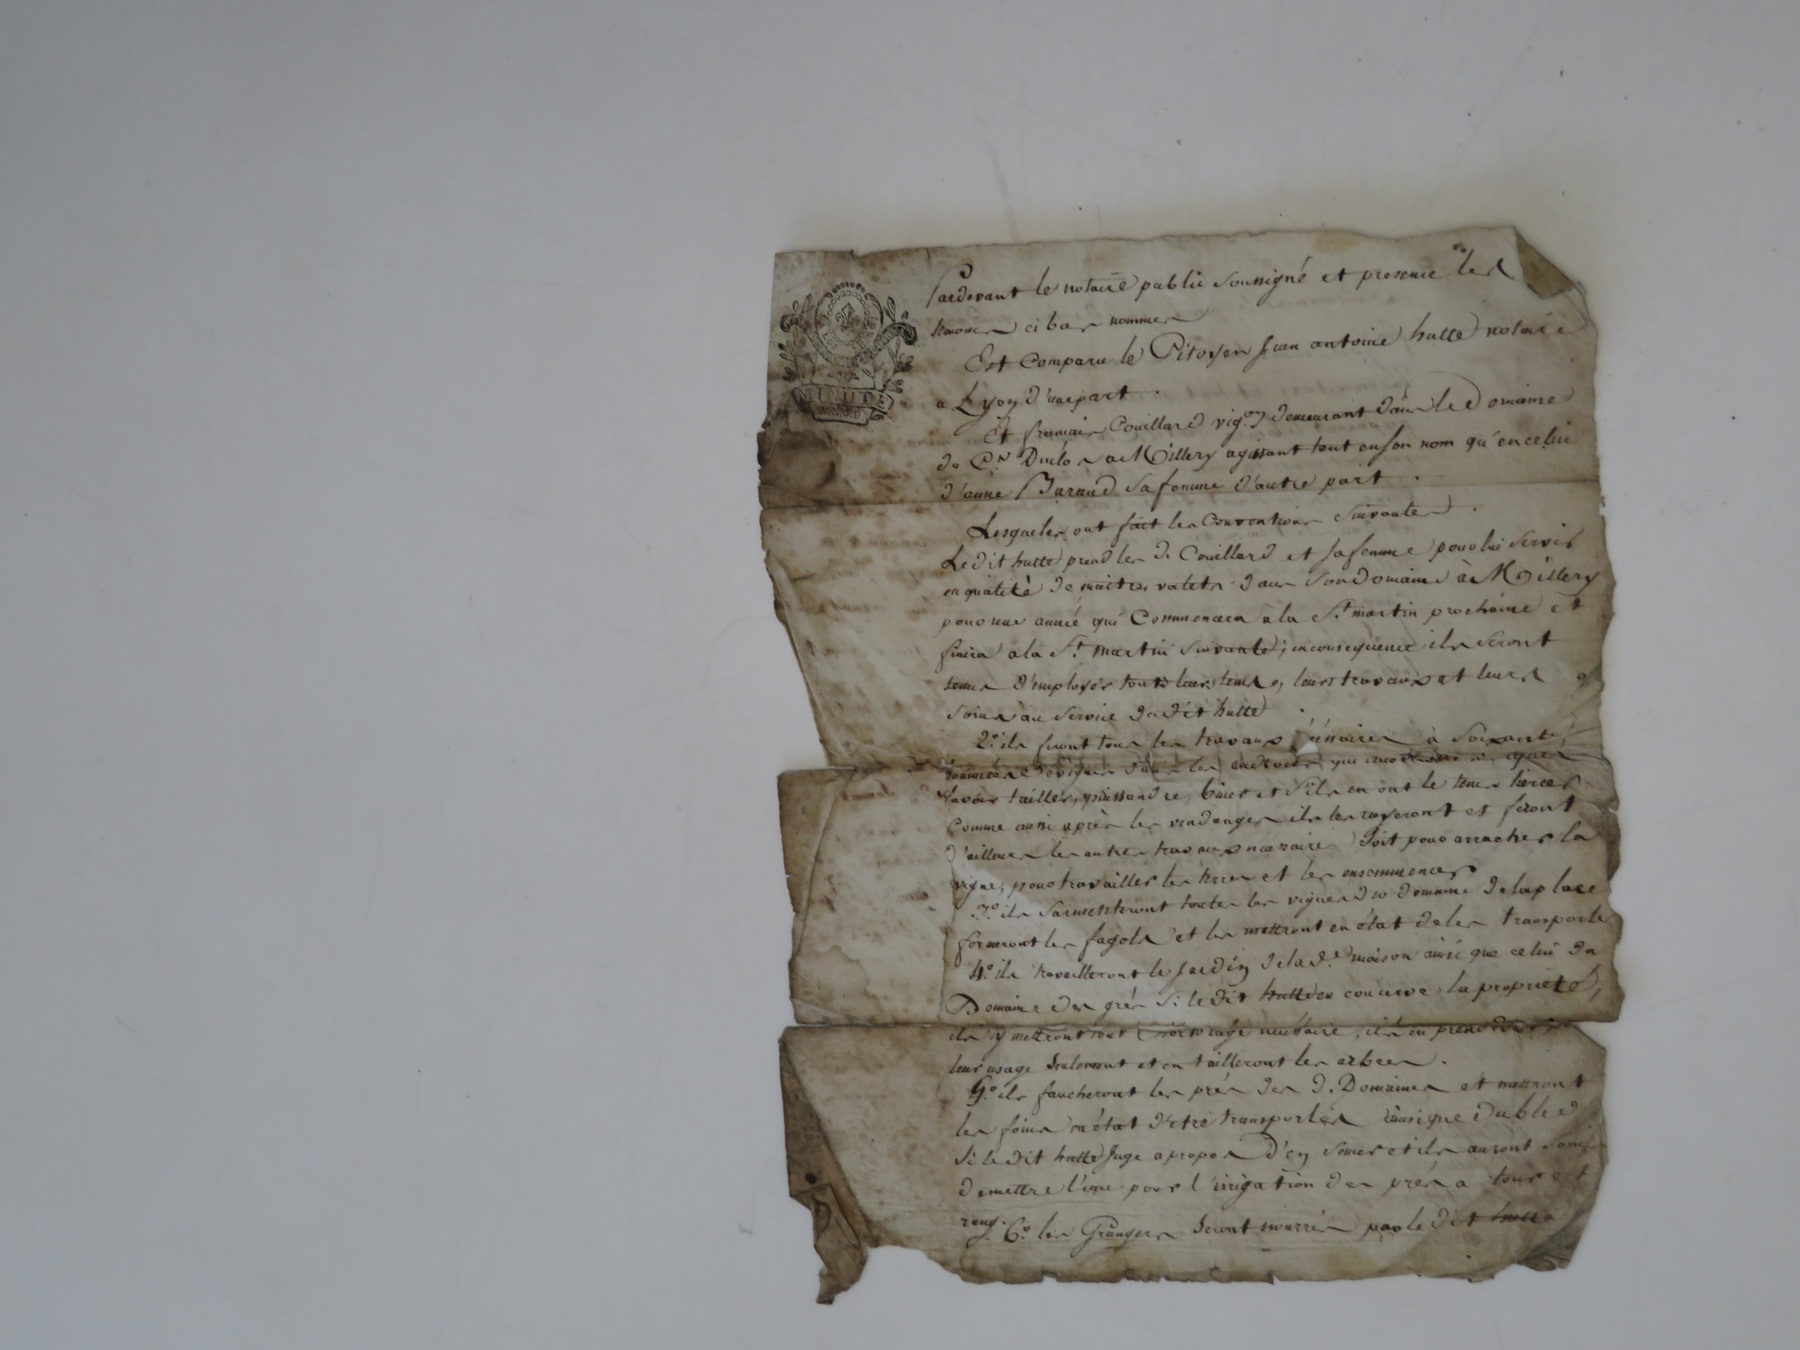 MINUTE
Pardevant le notaire public soussigné et presence des
temoins ci bas nommes
Est comparu le Citoyen Jean antoine hutte notaire
a Lyon d'une part .
Et francois Couillard vig.on demeurant dans le Domaine
du C.n Duclos a Millery agissant tant en son nom qu'en celui
d'anne Baraud sa femme d'autre part .
Lesqueles ont fait les Conventions suivantes .
Ledit hutte prend les d. Couillard et sa femme pour lui servir
en qualité de maitres valets dans son domaine à Millery
pour une année qui Commencera à la S.t martin prochaine et
finira a la S.t martin suivante ; en consequence ils seront
tenus d'employer tout leur tems, leurs travaux et leurs
soins au service dudit hutte .
2.o ils feront tous les travaux à soixante
de vignes dans les endroits qui
savoir tailler, biner et s'ils en ont le tems tiercer
Comme aussi après les vendanges ils les et feront
d'ailleurs les autres travaux necessaires soit pour arracher la
vigne, pour travailler les terres et les ensemencer
3.o ils sarmenteront toutes les vignes du domaine de la place
formeront les fagots et les mettront en état de les transporter
4.o ils travailleront le Jardin de la d.e maison ainsi que celui du
Domaine des grés si ledit hutte en conserve la proprieté,
ils y mettront tout l'ouvrage necessaire, ils en prendront
leur usage seulement et en tailleront les arbres .
5.o ils faucheront les prés des d. Domaines et mettront
les foins en état d'etre transportés ainsi que du bled
si ledit hutte Juge a propos d'en semer et ils auront soin
de mettre l'eau pour l'irrigation des prés a tour et
rang. 6.o les Grangers seront nourris par le dit hutte